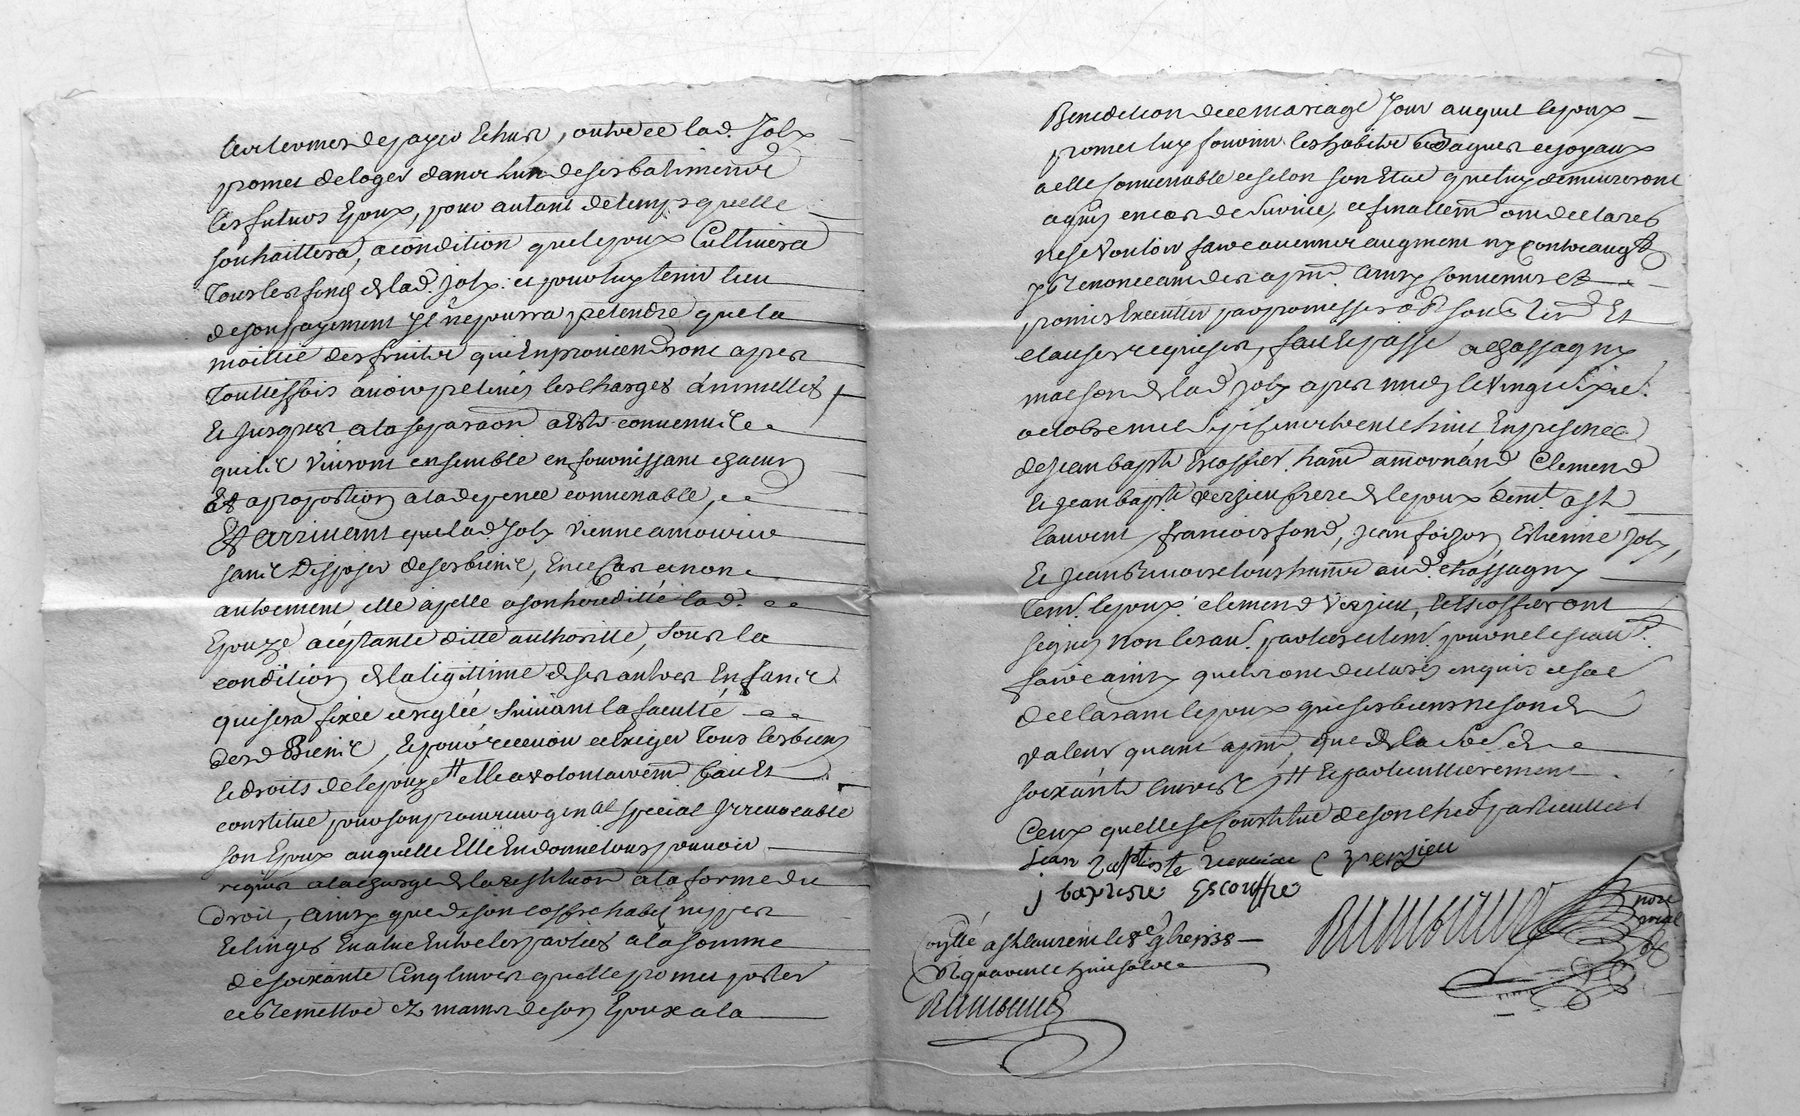 les termes de payer echus, outre ce lad. Joly
promet de loger dans l'un de ses batiments
les futurs Epoux, pour autant de temps quelle
souhaittera, acondition que lepoux Cultivera
Tous les fonds de lad. Joly. et pour luy tenir lieu
de son payement Il ne pourra pretendre que la
moittie des fruits qui En proviendront apres
Touttesfois avoir preleves les charges annuelles
Et jusques a la separaon a Esté convenu
quils vivront ensemble en fournissant chacun
Et a proportion a la depence convenable,
Et arrivant que lad Joly vienne amourir
sans Disposer de ses biens, En ce Cas et non
autrement, elle apelle a son heredité lad.
Epouze aceptante ditte authorité, sous la
condition de la legittime de ses autres Enfants
qui sera fixée et reglée suivant la faculté
desd Biens, Et pour recevoir et exiger Tous les biens
et droits de lepouze elle a volontairemt fait Et
constitué pour son procureur general special Irrevocable
son Epoux auquelle Elle En donne tous pouvoir
requis a la charge de la restitution a la forme du
droit, Ainsy que de son coffre habits nippes
Et linges Evalué Entre les parties a la somme
de soixante Cinq livres quelle promet porter
et remettre es mains de son Epoux a la
Benediction dece mariage Jour auquel lepoux
promet luy fournir les habits bagues et joyaux
a elle convenable et selon son Etat qui luy demeureront
aquis en cas de survie, et finallemt ont declarés
ne se vouloir faire aucunne augment ny contre augt
y Renonceant des apnt Ainsy convenus et
promis Executter par promesses &c sous &c Et
clauses requises, fait Et passé a chassagny
maison de lad Joly apres midy le vingt sixie.
octobre mil sept cent trente huit En presence
de Jean bapte Escoffier hant amornand Clemend
Et Jean bapte verzieu frere de lepoux demt a st
laurent, francois fond, Jean foizon, Etienne Joly,
Et Jean tous hants aud. chassagny
Tem. lepoux clemend verzieu, Et Escoffier ont
signes non les aut. parties et tem. pour ne le scavr.
faire ainsy quils ont declarés enquis et so
declarant lepoux que ses biens ne sont de
valeur quant apnt. que de la so de
soixante livres Et particulierement
Ceux quelle se Constitue de son chef particuliers
Jean Baptiste verzieu C verzieu
j baptiste Escouffie
notre
roial
Conlle a st laurent le 8e 9bre 1738
R quarente huit sols